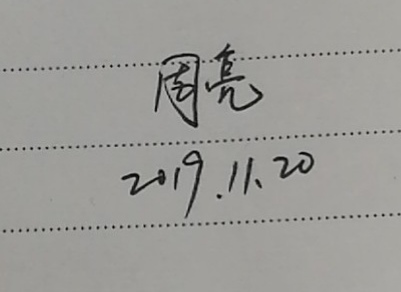 周亮
2019.11.20